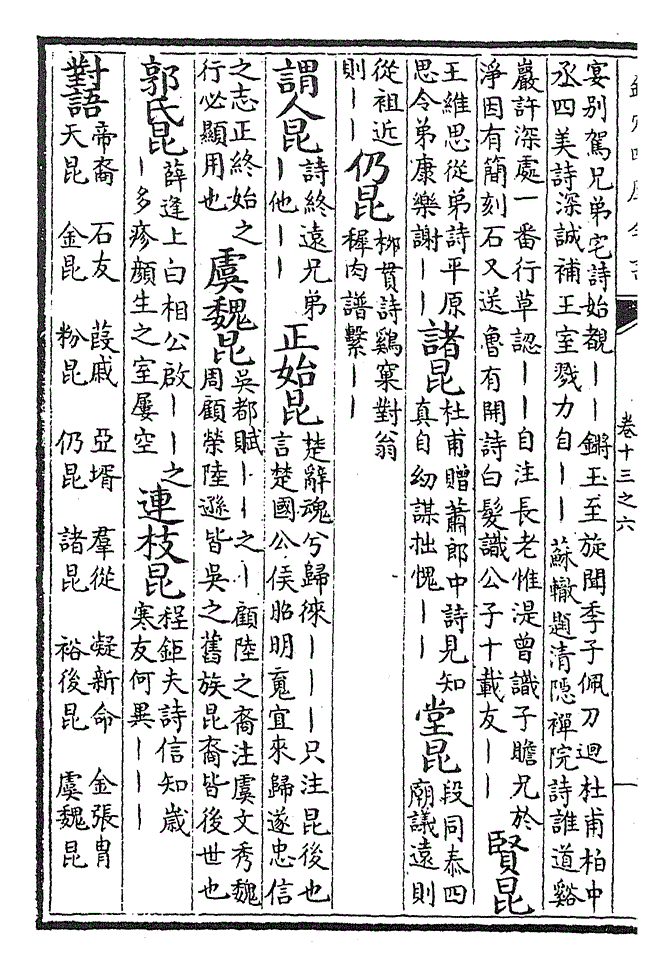 卷十三之六
宴别駕兄弟宅詩始覩丨丨鏘玉至旋聞季子佩刀迴杜甫柏中
丞四美詩深誠補王室戮力自丨丨 蘇轍題清隐禪院詩誰道谿
嚴許深處一番行草認丨丨自注長老惟湜曾識子瞻兄於
淨因有簡刻石又送魯有開詩白髮識公子十載友丨丨
賢昆
王維思從弟詩平原
思令弟康樂謝丨丨
諸昆
杜甫贈蕭郎中詩見知
真自幼謀拙愧丨丨
堂昆
段同泰四
廟議遠則
從祖近
則丨丨
仍昆
柳貫詩鷄窠對翁
穉肉譜繫丨丨
謂人昆
詩終遠兄弟
丨他丨丨
正始昆
楚辭魂兮歸徠丨丨丨只注昆後也
言楚國公侯昭明寬宜來歸遂忠信
之志正終始之
行必顯用也
虞魏昆
吳都賦丨丨之丨顧陸之裔注虞文秀魏
周顧榮陸遜皆吳之舊族昆裔皆後世也
郭氏昆
薛逢上白相公啟丨丨之
丨多疹顔生之室屢空
連枝昆
程鉅夫詩信知歲
寒友何異丨丨丨
對語
帝裔 石友 葭戚 亞壻 羣從 凝新命 金張胄
天昆 金昆 粉昆 仍昆 諸昆 裕後昆 虞魏昆